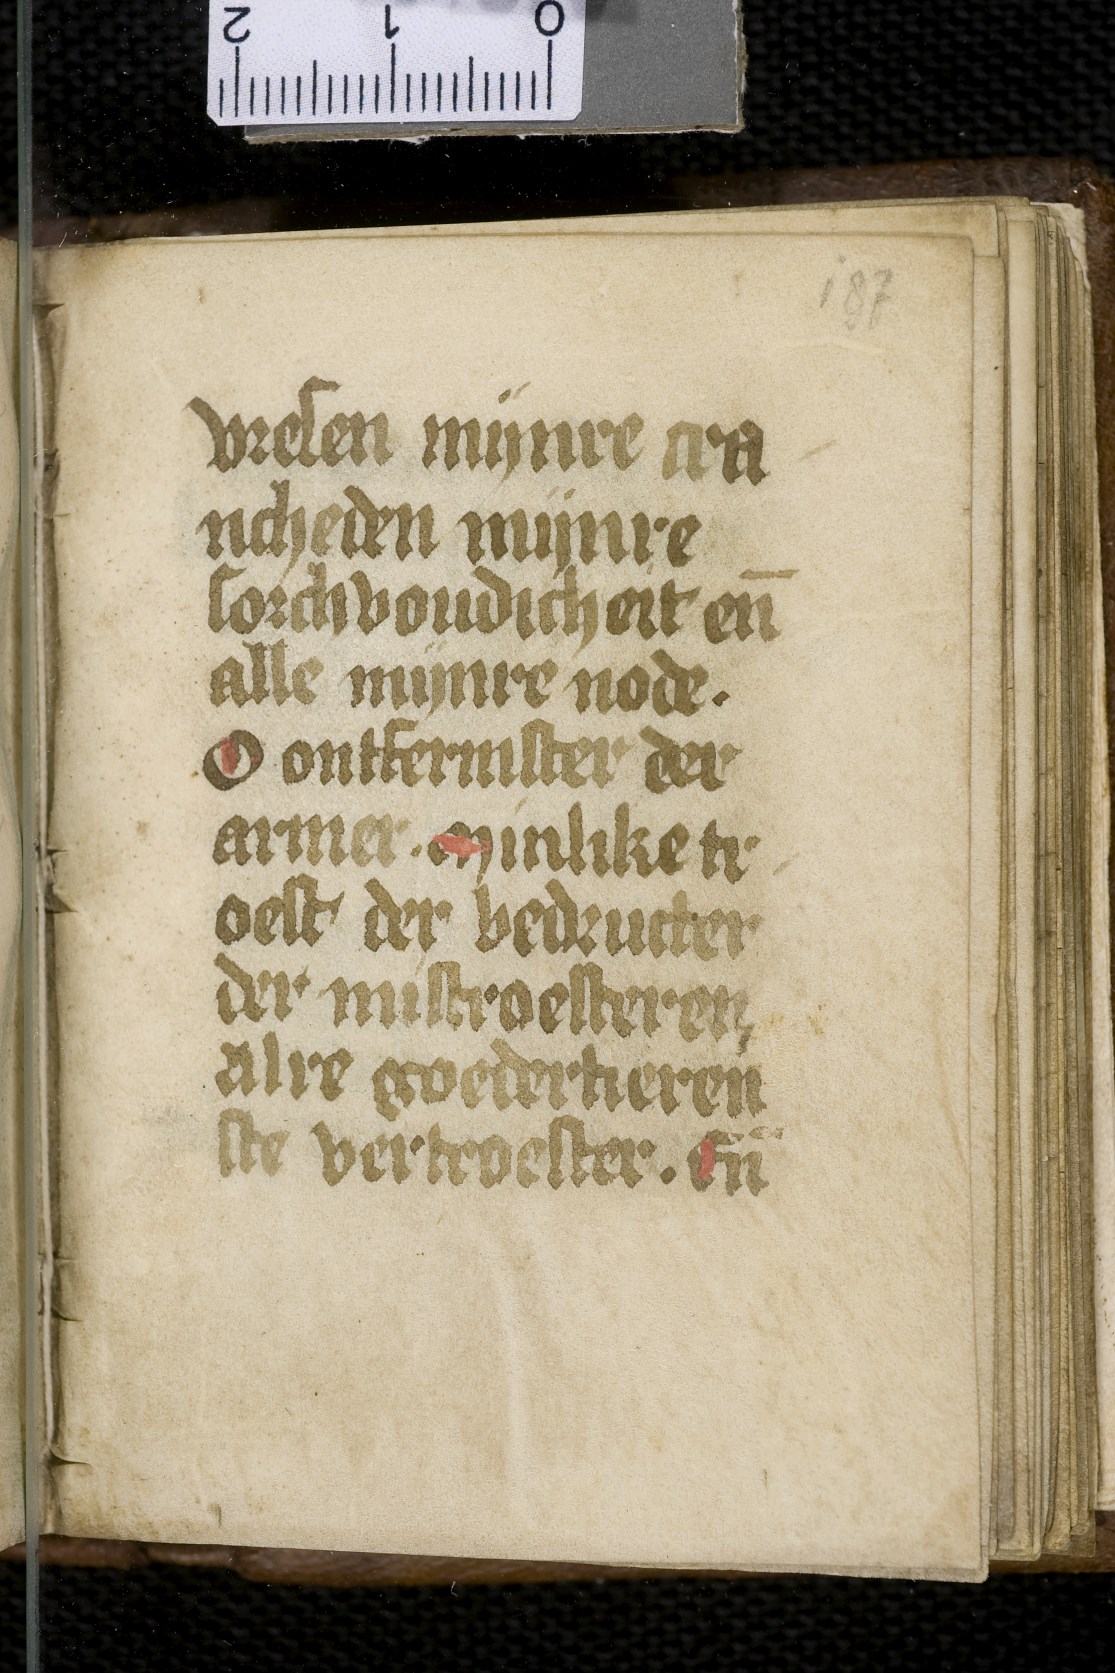 2 1 0
187
vresen mijnre cra
ncheden mijnre
sorchvoudicheit en̄
alle mijnre node.
O ontfermster der
armer. Minlike tr
oest der bedructer
der mistroesteren
alre goedertieren
ste vertroester. En̄